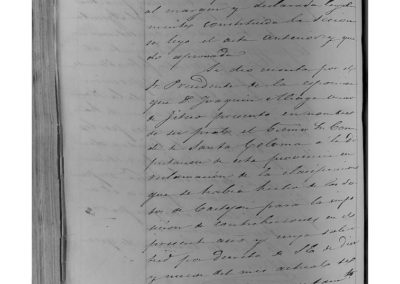 al margen y declarada legal-
mente constituida la sesion
se leyó el acta anterior y que-
dó aprobada.
Se dió cuenta por el
Sr. Presidente de la esposicion
que D. Joaquin Aliaga vecino
de presenta en nombre
de su el Escmo. Sr. Con-
de de Santa Coloma a la Di-
putacion de esta provincia en
reclamacion de la clasificacion
que se habia hecho de los So-
tos de Castejon para la impo-
sicion de contribuciones en el
presente año y cuya solici-
tud por decreto de S.E. de diez
y nueve del mes actual se